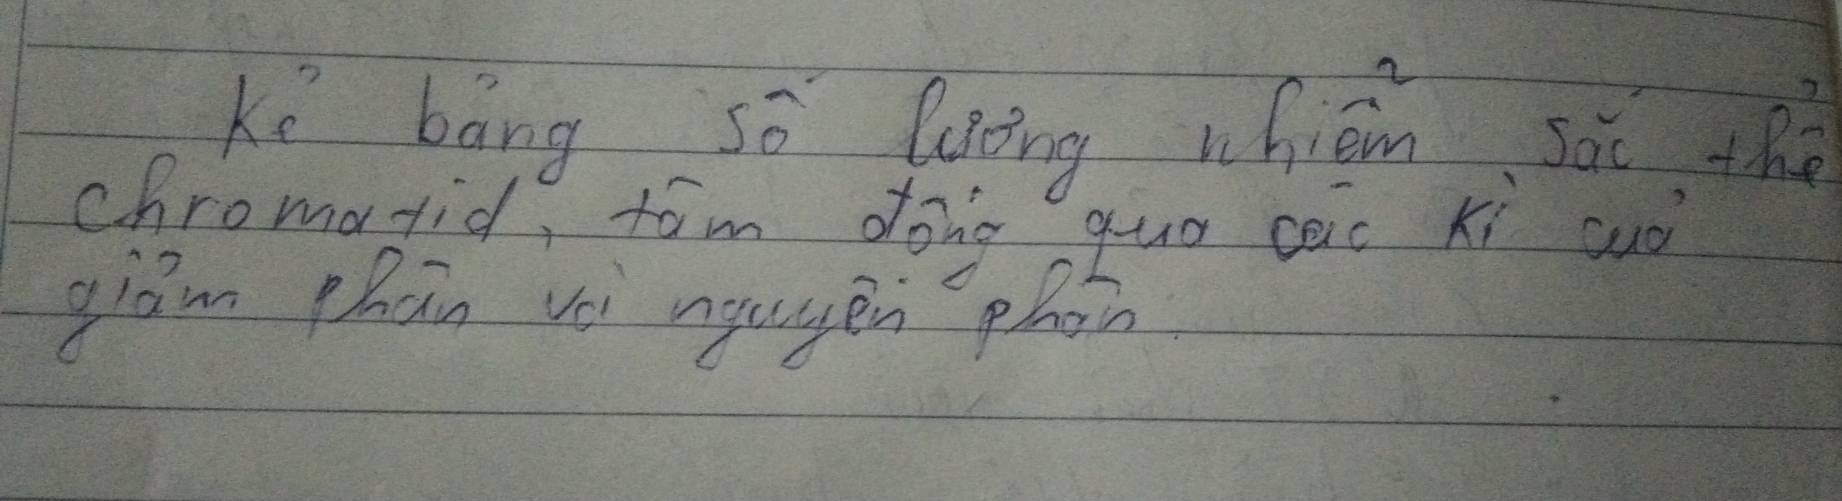 Kẻ bảng số lượng nhiễm sắc thể
chromatid, tâm động qua các kì của
giảm phân và nguyên phân.